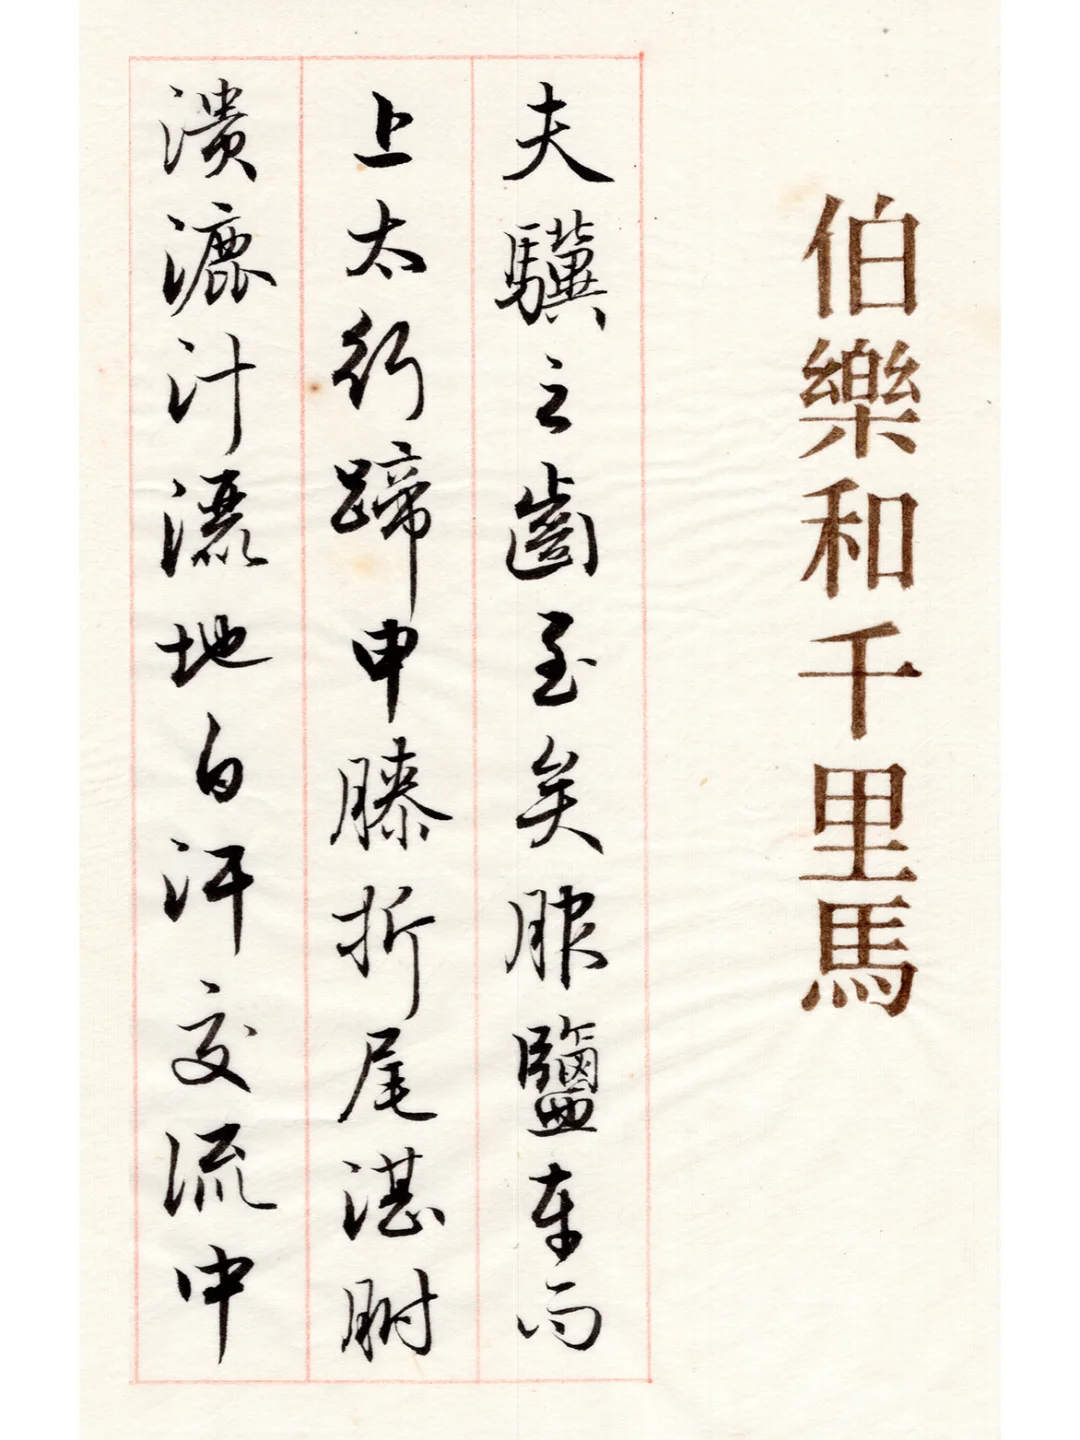 伯樂和千里馬
夫驥之齒至矣服鹽車而
上太行蹄申膝折尾湛胕
潰漉汁灑地白汗交流中